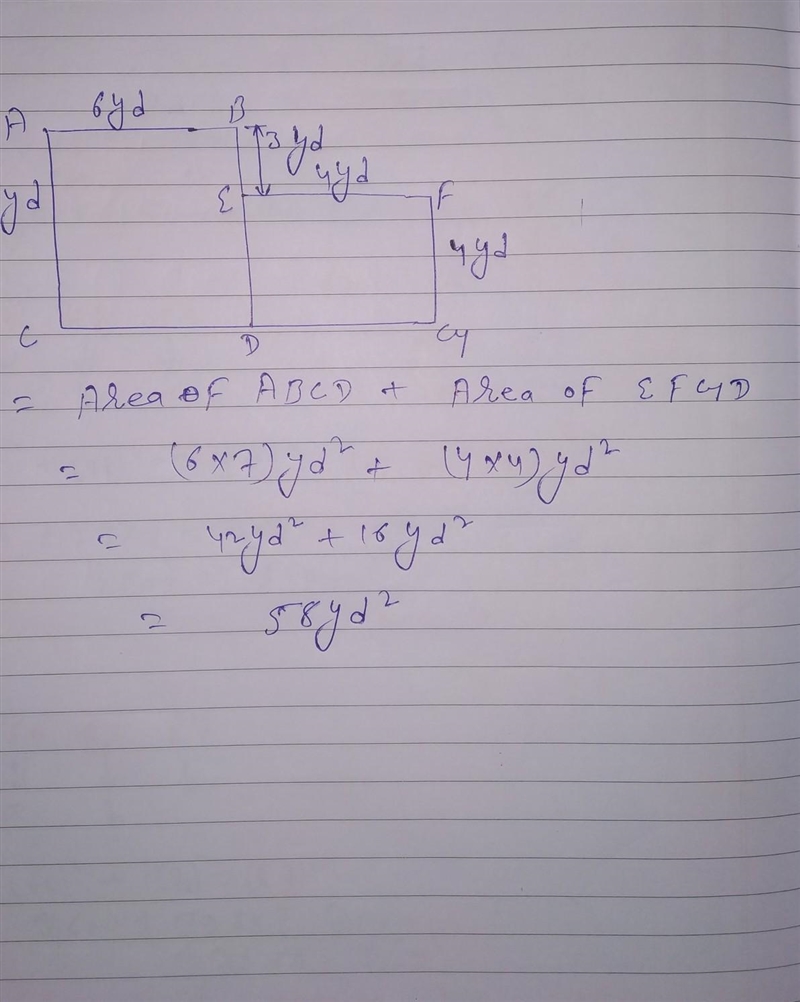 6yd
A B
3yd
yd 4yd
E F
4yd
C D G
= Area of ABCD + Area of EFGD
= (6×7)yd² + (4×4)yd²
= 42yd² + 16yd²
= 58yd²